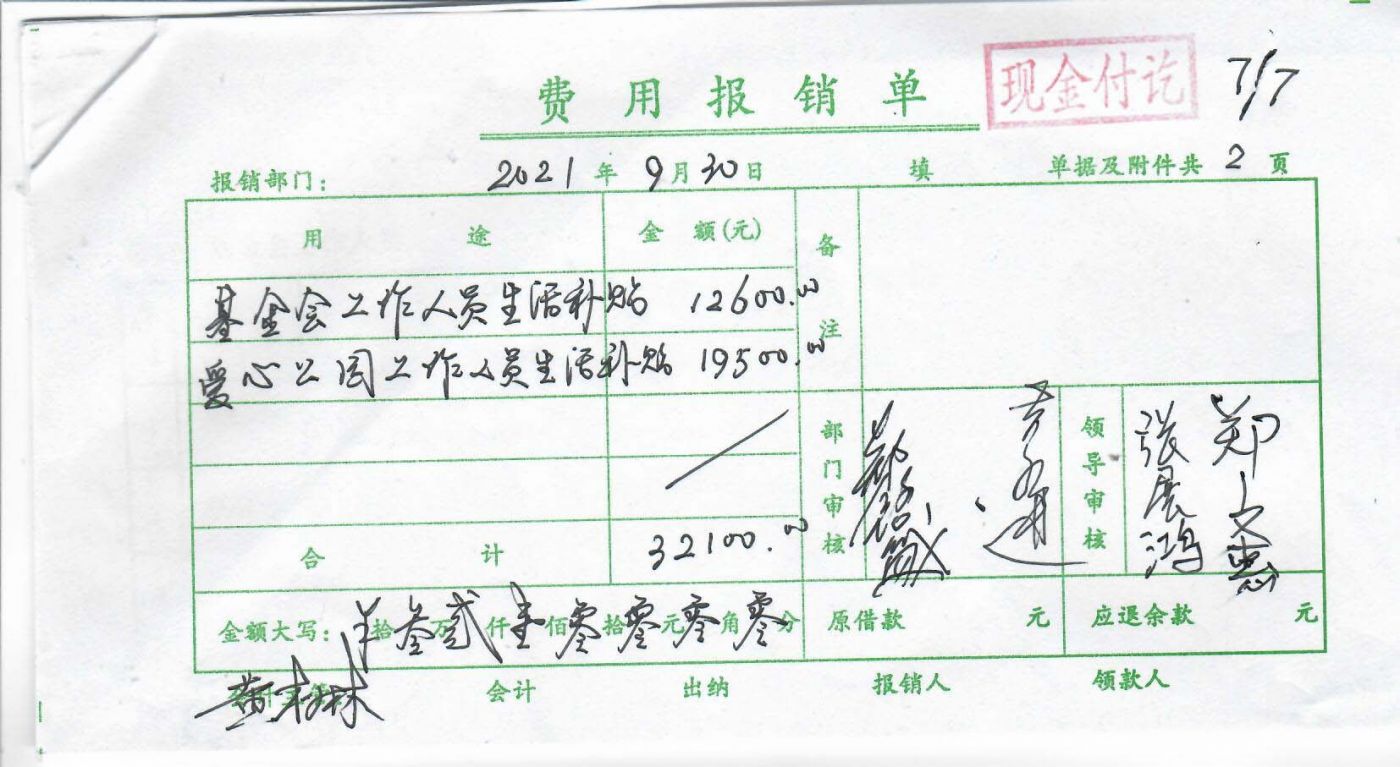 费用报销单 现金付讫 7/7
报销部门： 2021年9月30日 填 单据及附件共2页
用途 金额(元) 备注
基金会工作人员生活补贴 12600.00
爱心公园工作人员生活补贴 19500.00
部门审核 领导审核 张展鸿 郑文惠
合计 32100.00
金额大写： 拾叁万贰仟壹佰零拾零元零角零分 原借款 元 应退余款 元
会计 出纳 报销人 领款人